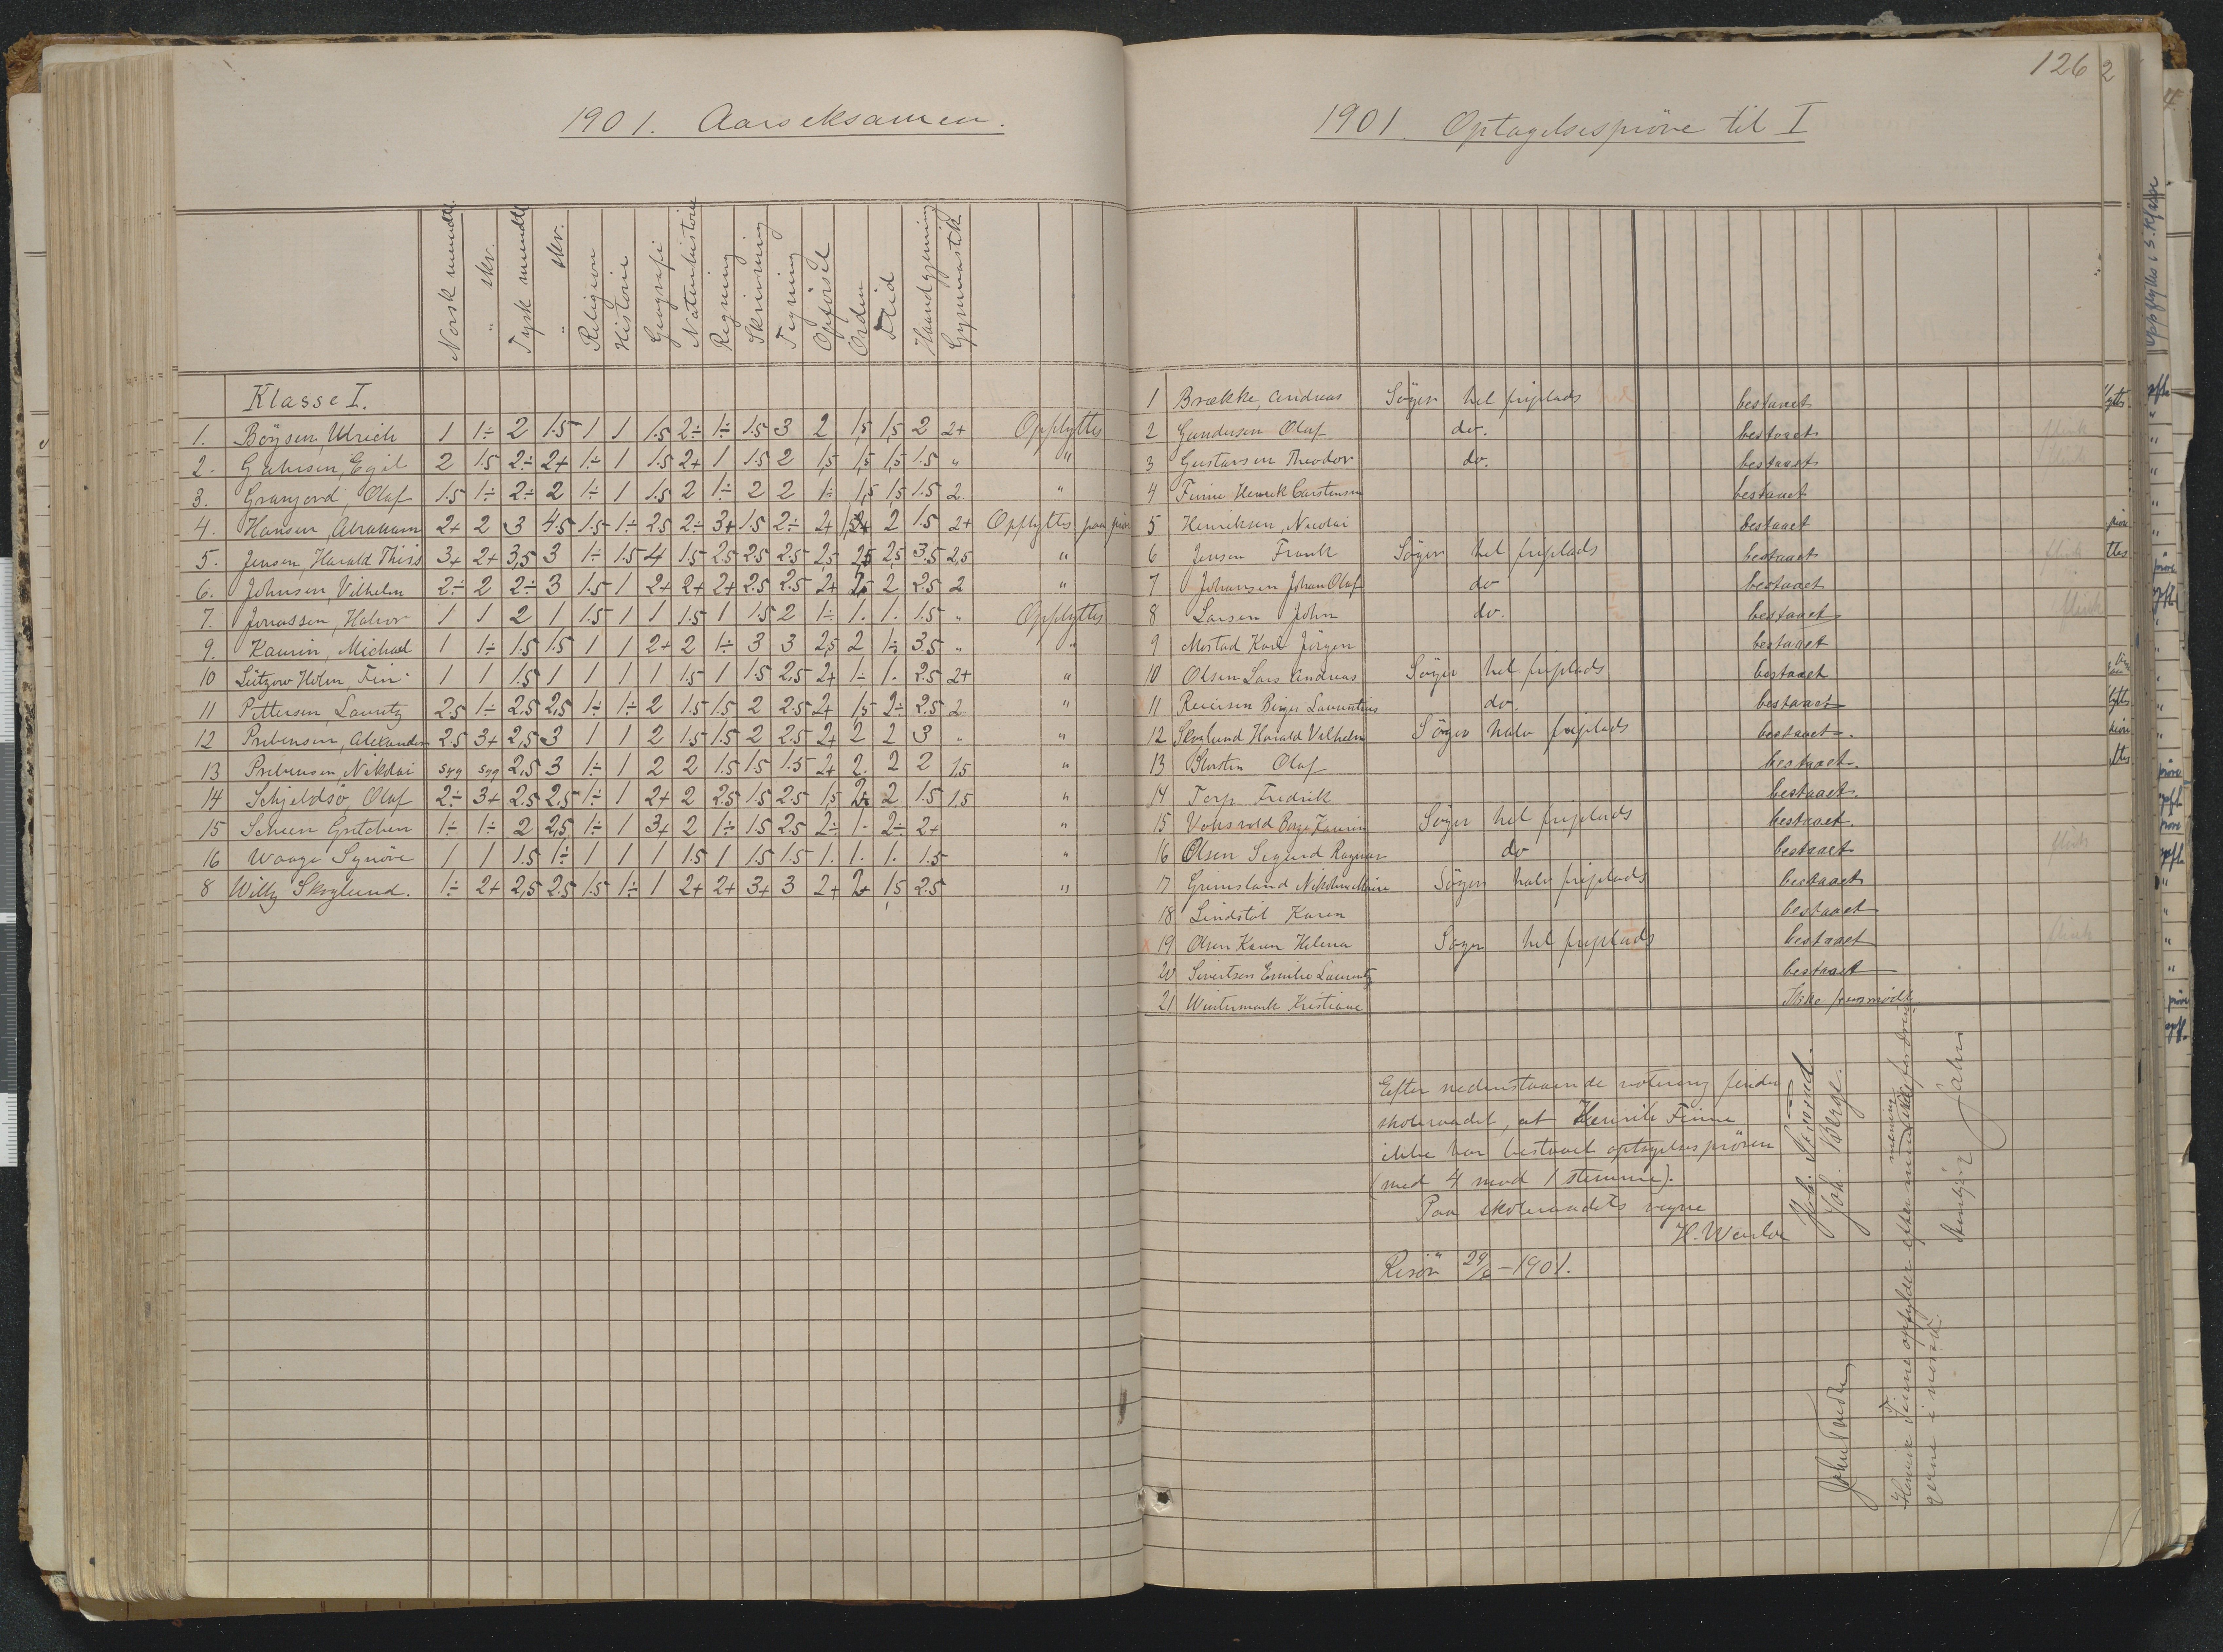 1901. Aarseksamen.
Norsk mundtl.
" skr.
Tysk mundtl
" skr.
Religion
Historie
Geografi
Naturhistorie
Regning
Skrivning
Tegning
Opførsel
Orden
Flid
Haandgjerning
Gymnastik
Klasse I.
1. Böysen, Ulrich 1 1÷ 2 1.5 1 1 1.5 2÷ 1÷ 1.5 3 2 1,5 1,5 2 2+ Opflyttes
2. Egil 2 1.5 2÷ 2+ 1÷ 1 1.5 2+ 1 1.5 2 1,5 1,5 1,5 1.5 " "
3. Olaf 1.5 1÷ 2÷ 2 1÷ 1 1.5 2 1÷ 2 2 1÷ 1,5 1,5 1.5 2. "
4. Hansen, Abraham 2+ 2 3 4.5 1.5 1÷ 2.5 2÷ 3+ 1.5 2÷ 2+ 2 1.5 2+ Opflyttes paa
5. Jensen, Harald Thiis 3+ 2+ 3,5 3 1÷ 1.5 4 1.5 2.5 2.5 2.5 2,5 2,5 2,5 3.5 2,5 "
6. Johnsen, Vilhelm 2÷ 2 2÷ 3 1.5 1 2+ 2+ 2+ 2.5 2.5 2+ 2 2.5 2 "
7. Jonassen, Halvor 1 1 2 1 1.5 1 1 1.5 1 1.5 2 1÷ 1. 1. 1.5 " Opflyttes
9. Kaurin, Michael 1 1÷ 1.5 1.5 1 1 2+ 2 1÷ 3 3 2,5 2 1÷ 3.5 " "
10 Lützow Holm, Fin 1 1 1.5 1 1 1 1 1.5 1 1.5 2,5 2+ 1÷ 1. 2.5 2+ "
11 Pettersen, Lauritz 2.5 1÷ 2,5 2,5 1÷ 1÷ 2 1.5 1.5 2 2.5 2+ 1,5 2÷ 2.5 2. "
12 Prebensen, Alexander 2.5 3+ 2,5 3 1 1 2 1.5 1.5 2 2.5 2+ 2 2 3 " "
13 Prebensen, Nikolai syg syg 2,5 3 1÷ 1 2 2 1.5 1.5 1.5 2+ 2. 2 2 1,5 "
14 Schjeldsö, Olaf 2÷ 3+ 2.5 2,5 1÷ 1 2+ 2 2.5 1.5 2.5 1,5 2 1.5 1.5 "
15 Scheen Gretchen 1÷ 1÷ 2 2,5 1÷ 1 3+ 2 1÷ 1.5 2.5 2÷ 1. 2÷ 2+ "
16 Waage Synöve 1 1 1.5 1÷ 1 1 1 1.5 1 1.5 1.5 1. 1. 1. 1.5 "
8 Willy Skoglund. 1÷ 2+ 2,5 2.5 1.5 1÷ 1 2+ 2+ 3+ 3 2+ 2+ 1,5 2.5 "
126
2
1901. Optagelsespröve til I
1 Brække, Andreas Söger hel friplads bestaaet
2 Gundersen Olaf do. bestaaet
3 Gustavsen Theodor do. bestaaet
4 Finne Henrik Carstensen bestaaet
5 Henriksen, Nicolai bestaaet
6 Jensen Frank Söger hel friplads bestaaet
7 Johansen Johan Olaf do bestaaet
8 Larsen John do. bestaaet
9 Mostad Karl Jörgen bestaaet
10 Olsen Lars Andreas Söger hel friplads bestaaet
11 Reiersen Birger Laurentius do. bestaaet
12 Skoglund Harald Vilhelm Söger halv friplads bestaaet.
13 Olaf bestaaet.
14 Terp Fredrik bestaaet.
15 Kaurin Söger hel friplads bestaaet.
16 Olsen Sigurd Ragnar do bestaaet
17 Grimsland Söger halv friplads bestaaet
18 Lindstöl Karen bestaaet
x 19 Olsen Karen Helena Söger hel friplads bestaaet
20 Sivertsen Emilie Laurentz bestaaet
21 Wintermark Kristiane Ikke fremmödt.
Efter nedenstaaende votering finder
skoleraadet, at Henrik Finne
ikke har bestaaet optagelsesprøven
(med 4 mod 1 stemme).
Paa skoleraadets vegne
H. Wenlo
Risör 29/6 – 1901.
Joh. Berge.
Henrik Finne opfylder efter min mening
i norsk.
Opflyttes i 3. Klasse